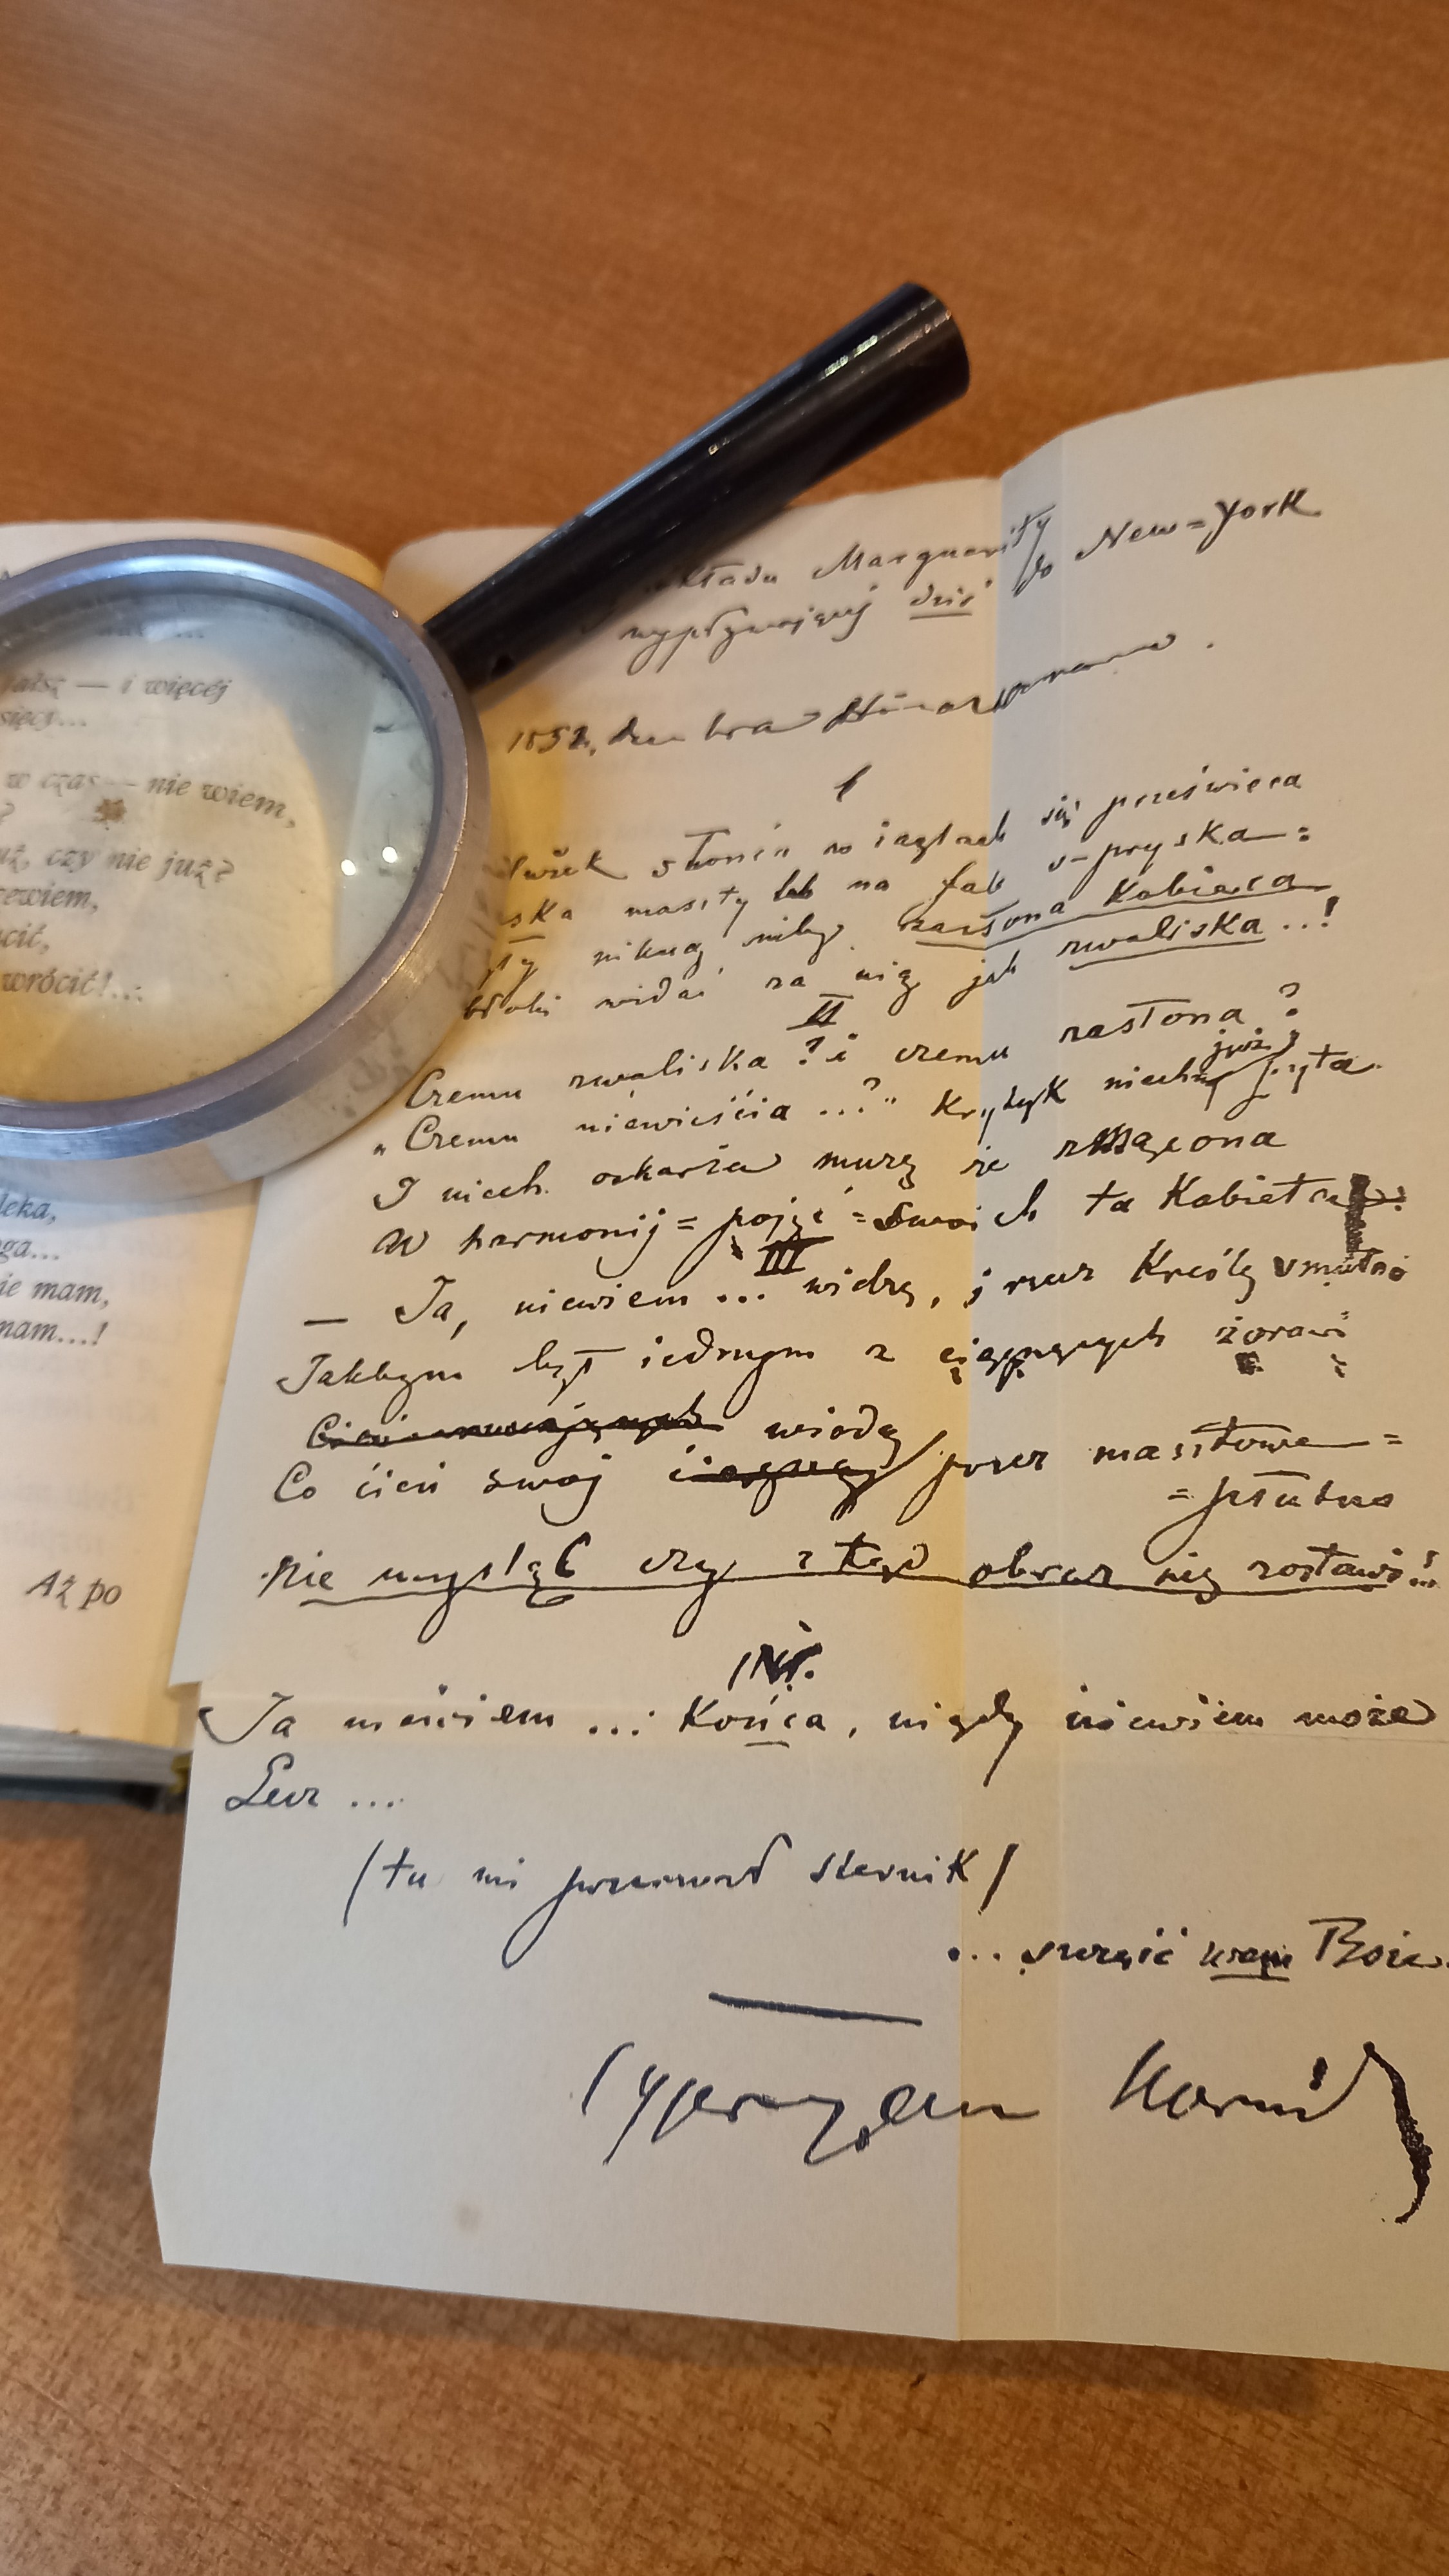 jalszą — i więcéj
sięcy...
w czas — nie wiem,
?
uż, czy nie już?
rewiem,
cić,
wrócić!...
leka,
ga...
ie mam,
mam...!
Aż po
kładu Marguerity
wypływającej dziś do New=York
1852,
I
słońca w żaglach się prześwieca
ska maszty lub na fali s-pryska=
niknąć niby zasłona Kobieca
obłoki widać za nią jak zwaliska...!
II
Czemu zwaliska? i czemu zasłona?
„Czemu niewieścia...?" Krytyk niechaj już pyta
I niech oskarża muzę że zmącona
W harmonij=pojęć=swoich ta Kobieta
III
— Ja, niewiem... widzę, i rzecz Kreślę smutno
Jakbym był iednym z ciągnących żórawi
wiodą
Co cień swój przez masztowe=
=płótno
Nie myśląc czy z tąd obraz się zostawi!..
IV.
Ja niewiem... Końca, nigdy niewiem może
Lecz...
/tu mi przerwał sternik/
... szczęść wam Boże.
Cyprian Norwid